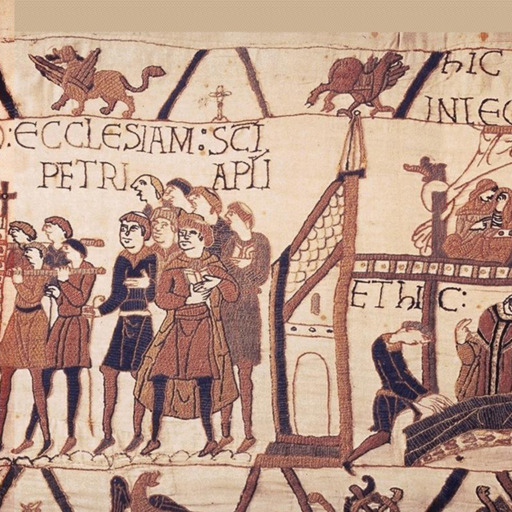 : ECCLESIAM : SCI
PETRI APLI
hIC
INLEC
ET hIC :